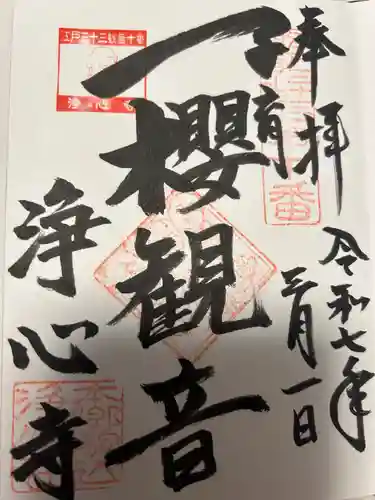 奉拝
令和七年
三月一日
子育
一櫻観音
浄心寺
江戸三十三観音十番
浄心寺